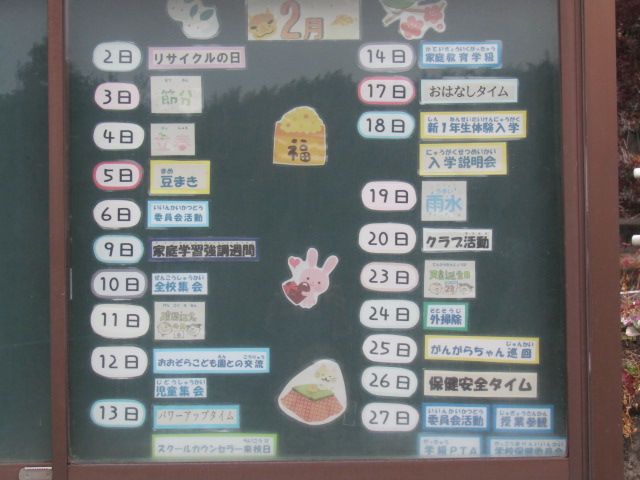 2月
2日 リサイクルの日
3日 節分
4日 立春
5日 豆まき
6日 委員会活動
9日 家庭学習強調週間
10日 全校集会
11日 建国記念の日
12日 おおぞらこども園との交流
児童集会
13日 パワーアップタイム
スクールカウンセラー来校日
福
14日 家庭教育学級
17日 おはなしタイム
18日 新1年生体験入学
入学説明会
19日 雨水
20日 クラブ活動
23日 天皇誕生日
24日 外掃除
25日 がんがらちゃん巡回
26日 保健安全タイム
27日 委員会活動 授業参観
学級PTA 学校保健委員会